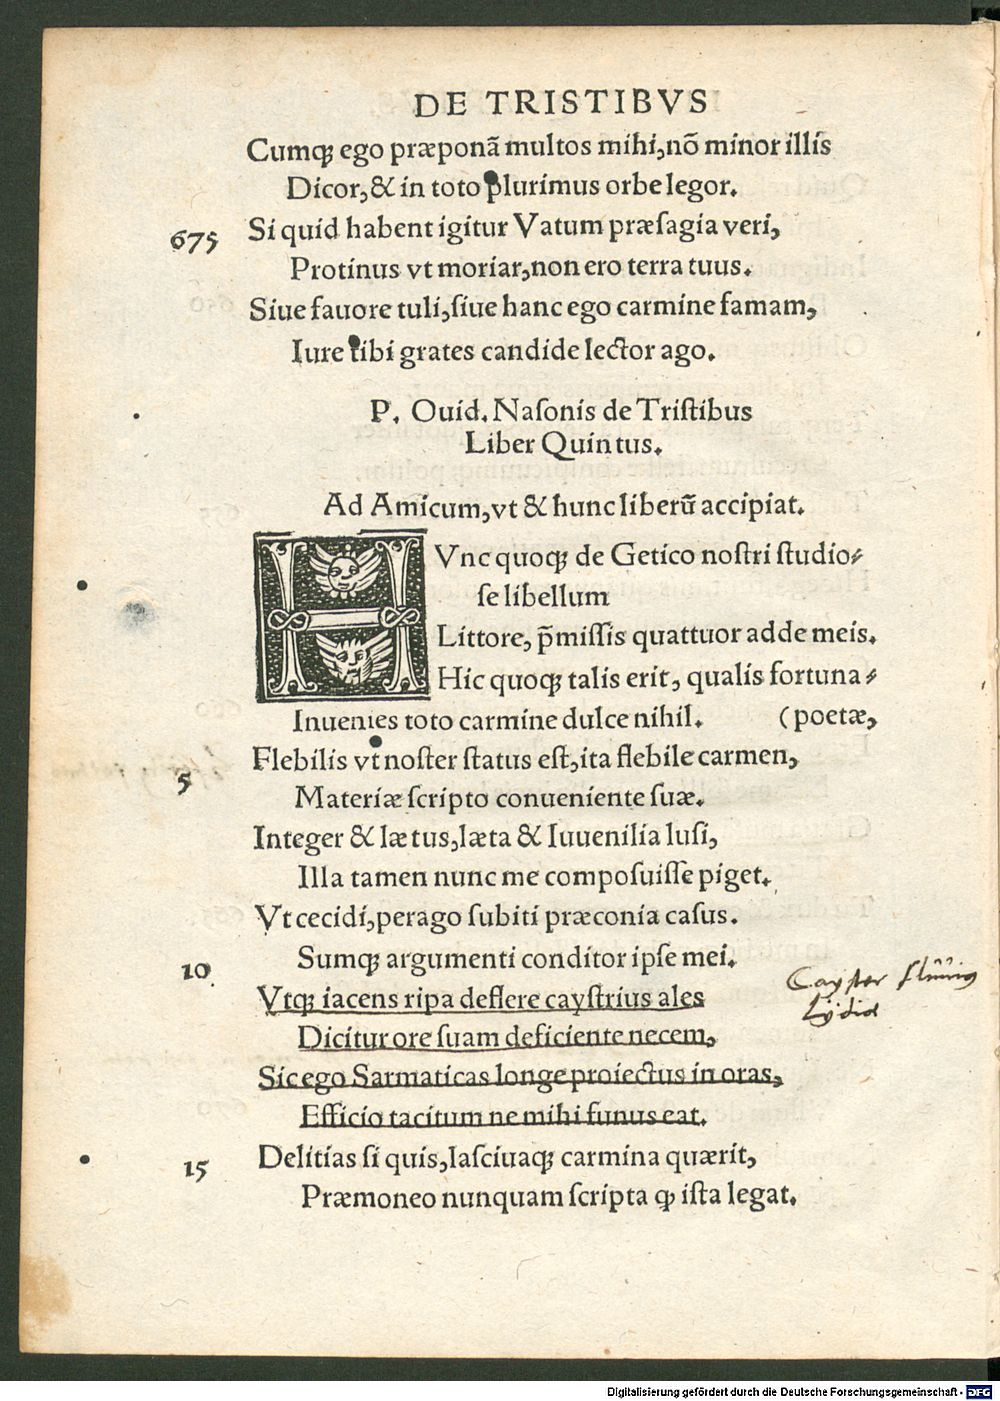 DE TRISTIBVS
Cumqꝫ ego præponã multos mihi, nõ minor illis
Dicor, & in toto plurimus orbe legor.
675 Si quid habent igitur Vatum præſagia veri,
Protinus vt moriar, non ero terra tuus.
Siue fauore tuli, ſiue hanc ego carmine famam,
Iure tibi grates candide lector ago.
P. Ouid. Naſonis de Triſtibus
Liber Quintus.
Ad Amicum, vt & hunc liberũ accipiat.
HVnc quoqꝫ de Getico noſtri ſtudio⸗
ſe libellum
Littore, p̃miſſis quattuor adde meis.
Hic quoqꝫ talis erit, qualis fortuna⸗
Inuenies toto carmine dulce nihil. (poetæ,
5 Flebilis vt noſter ſtatus eſt, ita flebile carmen,
Materiæ ſcripto conueniente ſuæ.
Integer & lætus, læta & Iuuenilia luſi,
Illa tamen nunc me compoſuiſſe piget.
Vt cecidi, perago ſubiti præconia caſus.
10 Sumqꝫ argumenti conditor ipſe mei.
Vtqꝫ iacens ripa deflere cayſtrius ales
Cayster fluuius
Lydiæ
Dicitur ore ſuam deficiente necem,
Sic ego Sarmaticas longe proiectus in oras,
Efficio tacitum ne mihi funus eat.
15 Delitias ſi quis, laſciuaqꝫ carmina quærit,
Præmoneo nunquam ſcripta ꝙ iſta legat.
Digitalisierung gefördert durch die Deutsche Forschungsgemeinschaft - DFG